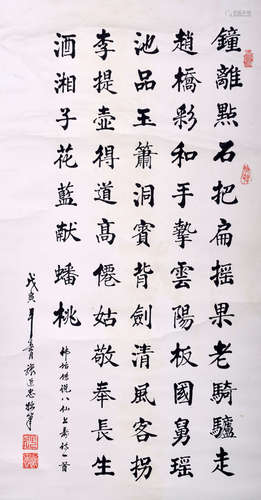 鐘離點石把扁摇果老騎驢走
趙橋彩和手摯雲陽板國舅瑶
池品玉簫洞賓背劍清風客拐
李提壺得道髙僊姑敬奉長生
酒湘子花藍献蟠桃
八仙上壽詩一首
戊寅年